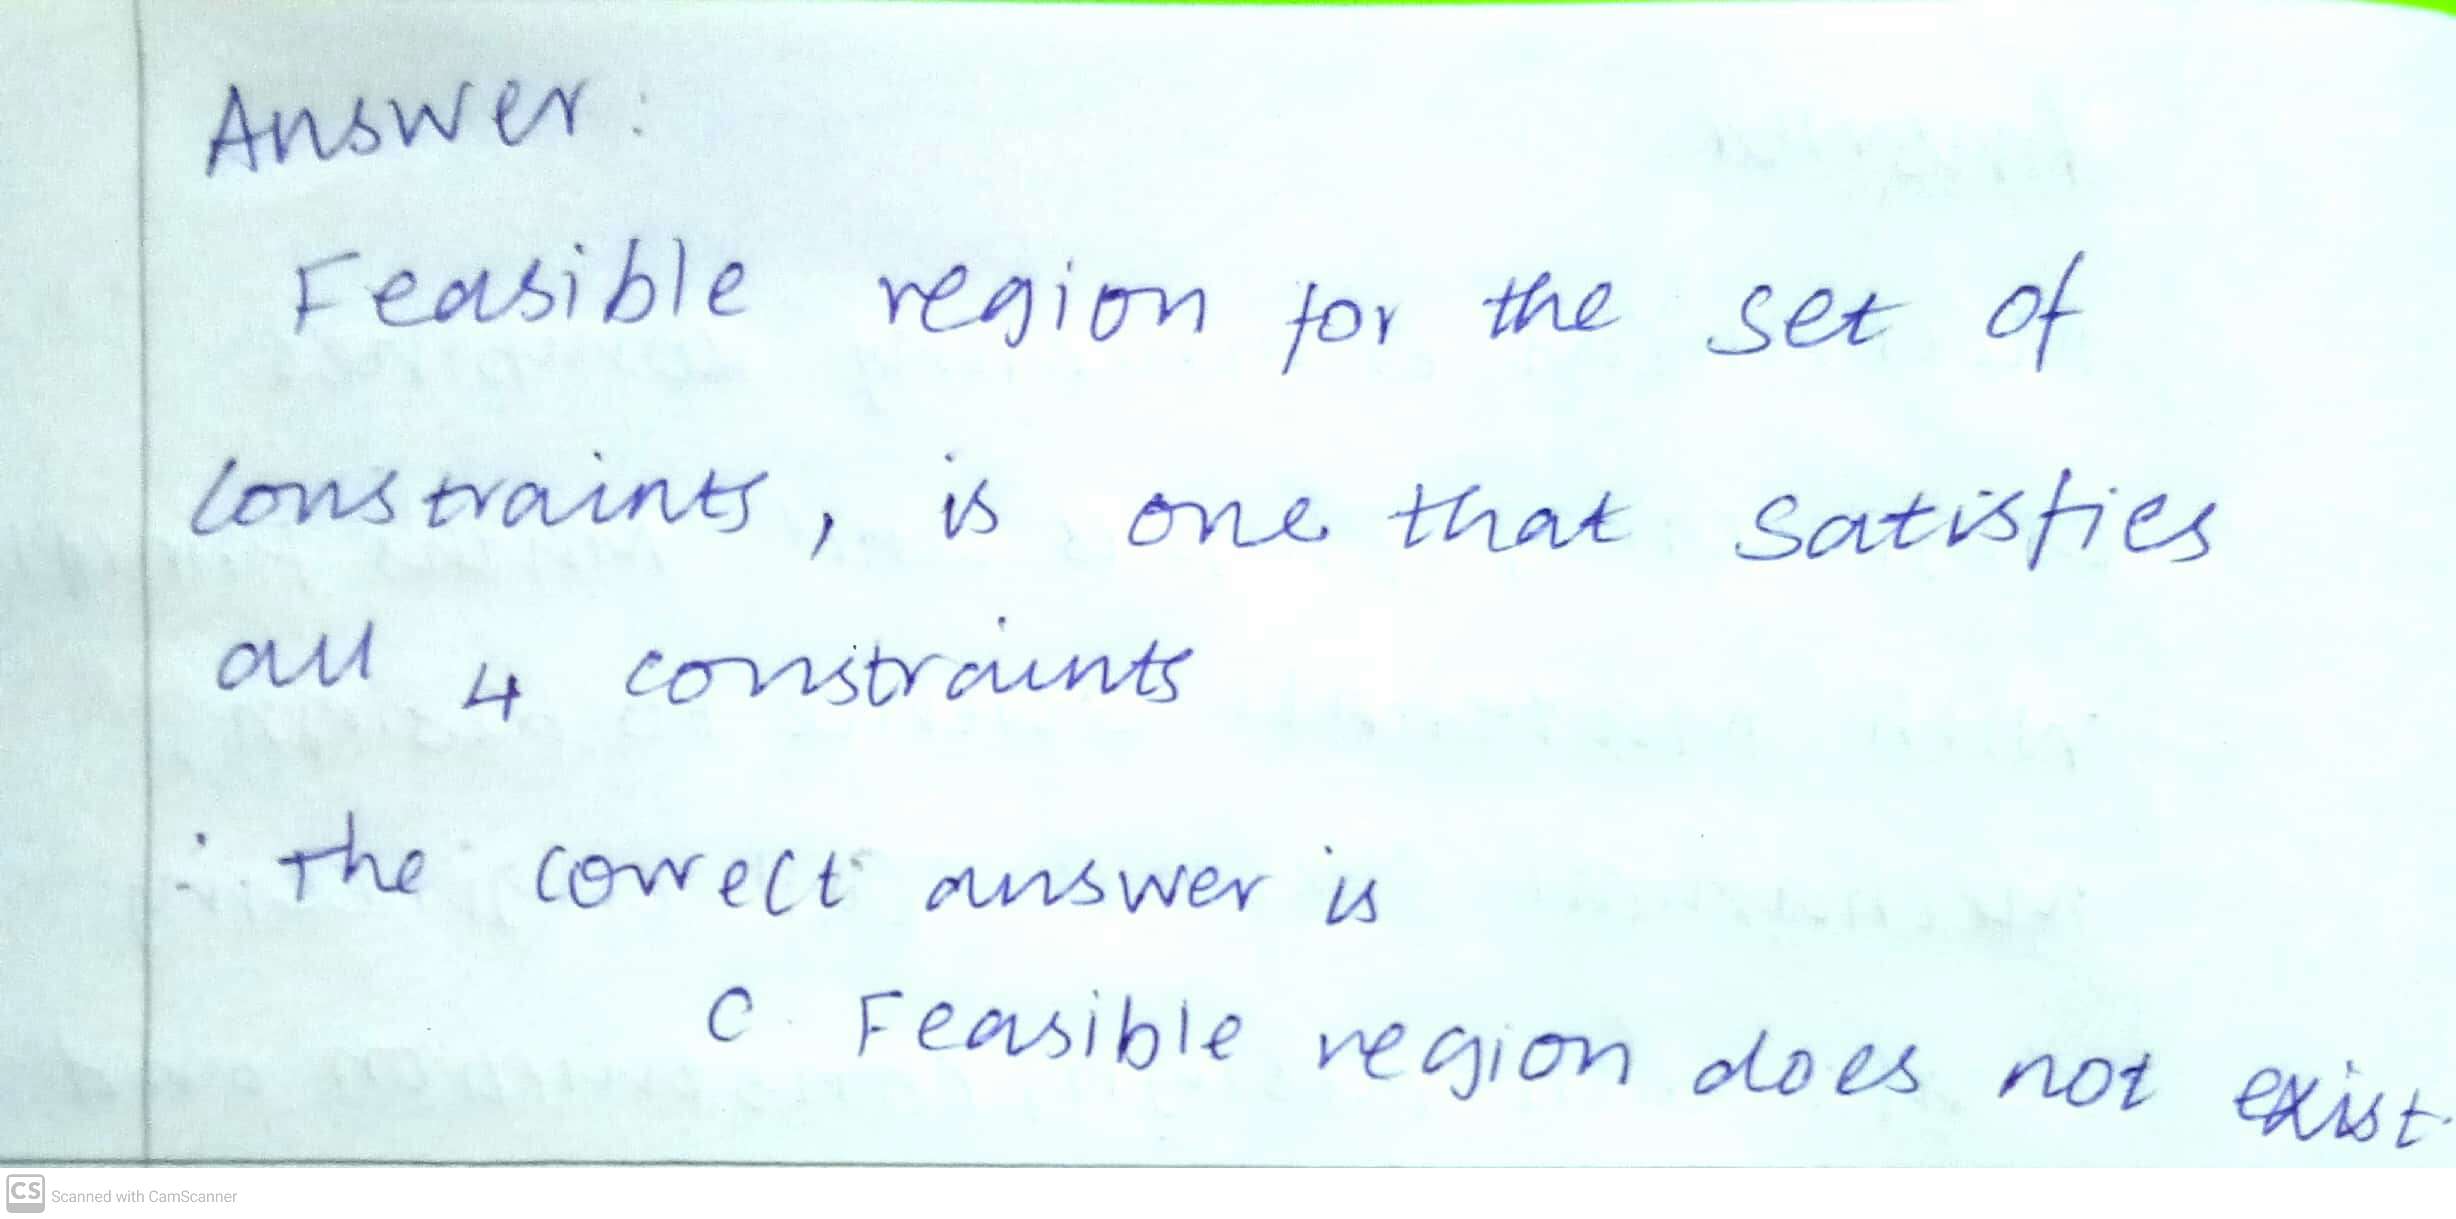 Answer:
Feasible region for the set of
constraints, is one that satisfies
all 4 constraints
∴ The correct answer is
C. Feasible region does not exist.
CS Scanned with CamScanner